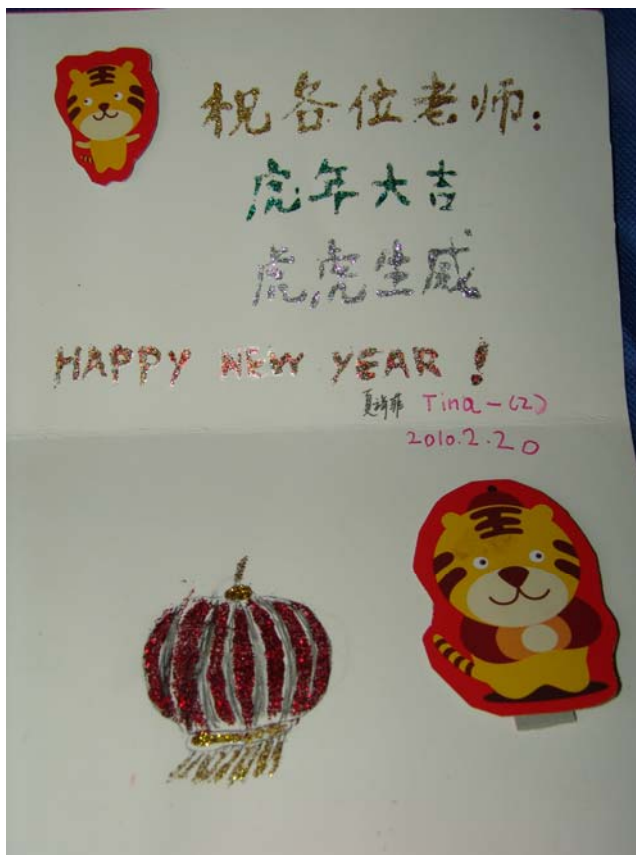 祝各位老师:
虎年大吉
虎虎生威
HAPPY NEW YEAR !
Tina-(2)
2010.2.20